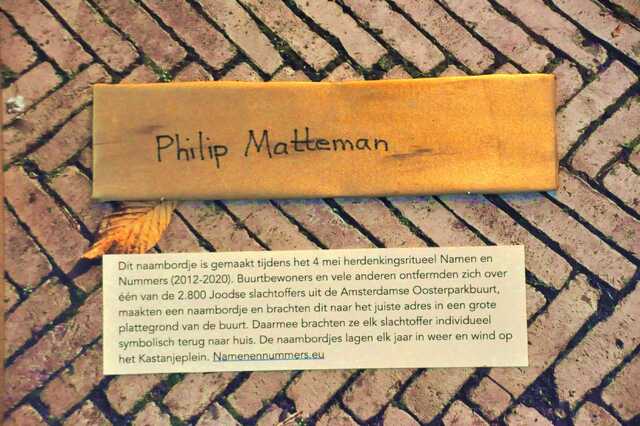 Philip Matteman
Dit naambordje is gemaakt tijdens het 4 mei herdenkingsritueel Namen en
Nummers (2012-2020). Buurtbewoners en vele anderen ontfermden zich over
één van de 2.800 Joodse slachtoffers uit de Amsterdamse Oosterparkbuurt,
maakten een naambordje en brachten dit naar het juiste adres in een grote
plattegrond van de buurt. Daarmee brachten ze elk slachtoffer individueel
symbolisch terug naar huis. De naambordjes lagen elk jaar in weer en wind op
het Kastanjeplein. Namenennummers.eu